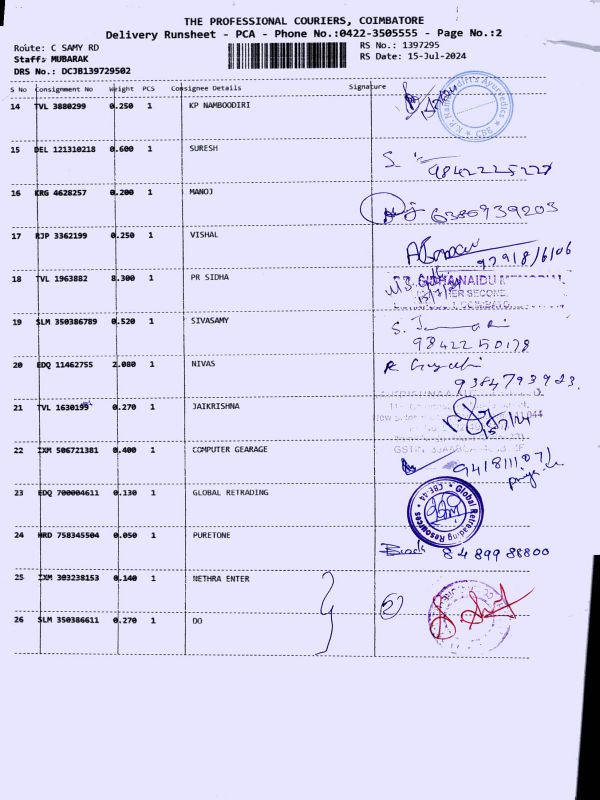 THE PROFESSIONAL COURIERS, COIMBATORE
Delivery Runsheet - PCA - Phone No.:0422-3505555 - Page No.:2
Route: C SAMY RD RS No.: 1397295
Staff: MUBARAK RS Date: 15-Jul-2024
DRS No.: DCJB139729502
S No Consignment No Weight PCS Consignee Details Signature
14 TVL 3880299 0.250 1 KP NAMBOODIRI
15 DEL 121310218 0.600 1 SURESH
S. 9842225227
16 KRG 4628257 0.200 1 MANOJ
6380939203
17 RJP 3362199 0.250 1 VISHAL
18 TVL 1963882 8.300 1 PR SIDHA
15/7/24
19 SLM 350386789 0.520 1 SIVASAMY
S.
9842250178
20 EDQ 11462755 2.080 1 NIVAS
R
9384793923.
21 TVL 1630199 0.270 1 JAIKRISHNA
15/7/24
22 IXM 506721381 0.400 1 COMPUTER GEARAGE
23 EDQ 700004611 0.130 1 GLOBAL RETRADING
Global Retreading Resources CBE-44
24 HRD 758345504 0.050 1 PURETONE
84899 88800
25 IXM 303238153 0.140 1 NETHRA ENTER
2
26 SLM 350386611 0.270 1 DO